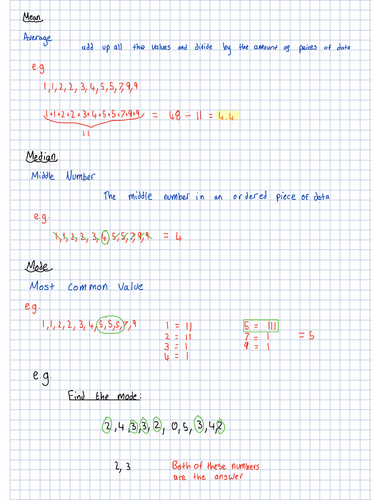 Mean
Average
add up all the values and divide by the amount of peices of data
e.g
1,1,2,2,3,4,5,5,7,9,9
1+1+2+2+3+4+5+5+7+9+9 = 48 - 11 = 4.4
11
Median
Middle Number
The middle number in an ordered piece of data
e.g.
1,1,2,2,3,4,5,5,7,9,9 = 4
Mode
Most common value
e.g.
1,1,2,2,3,4,5,5,5,7,9
1 = 11
5 = 111
2 = 11
7 = 1
= 5
3 = 1
9 = 1
4 = 1
e.g.
Find the mode:
2,4,3,3,2,0,5,3,4,2
2,3
Both of these numbers
are the answer